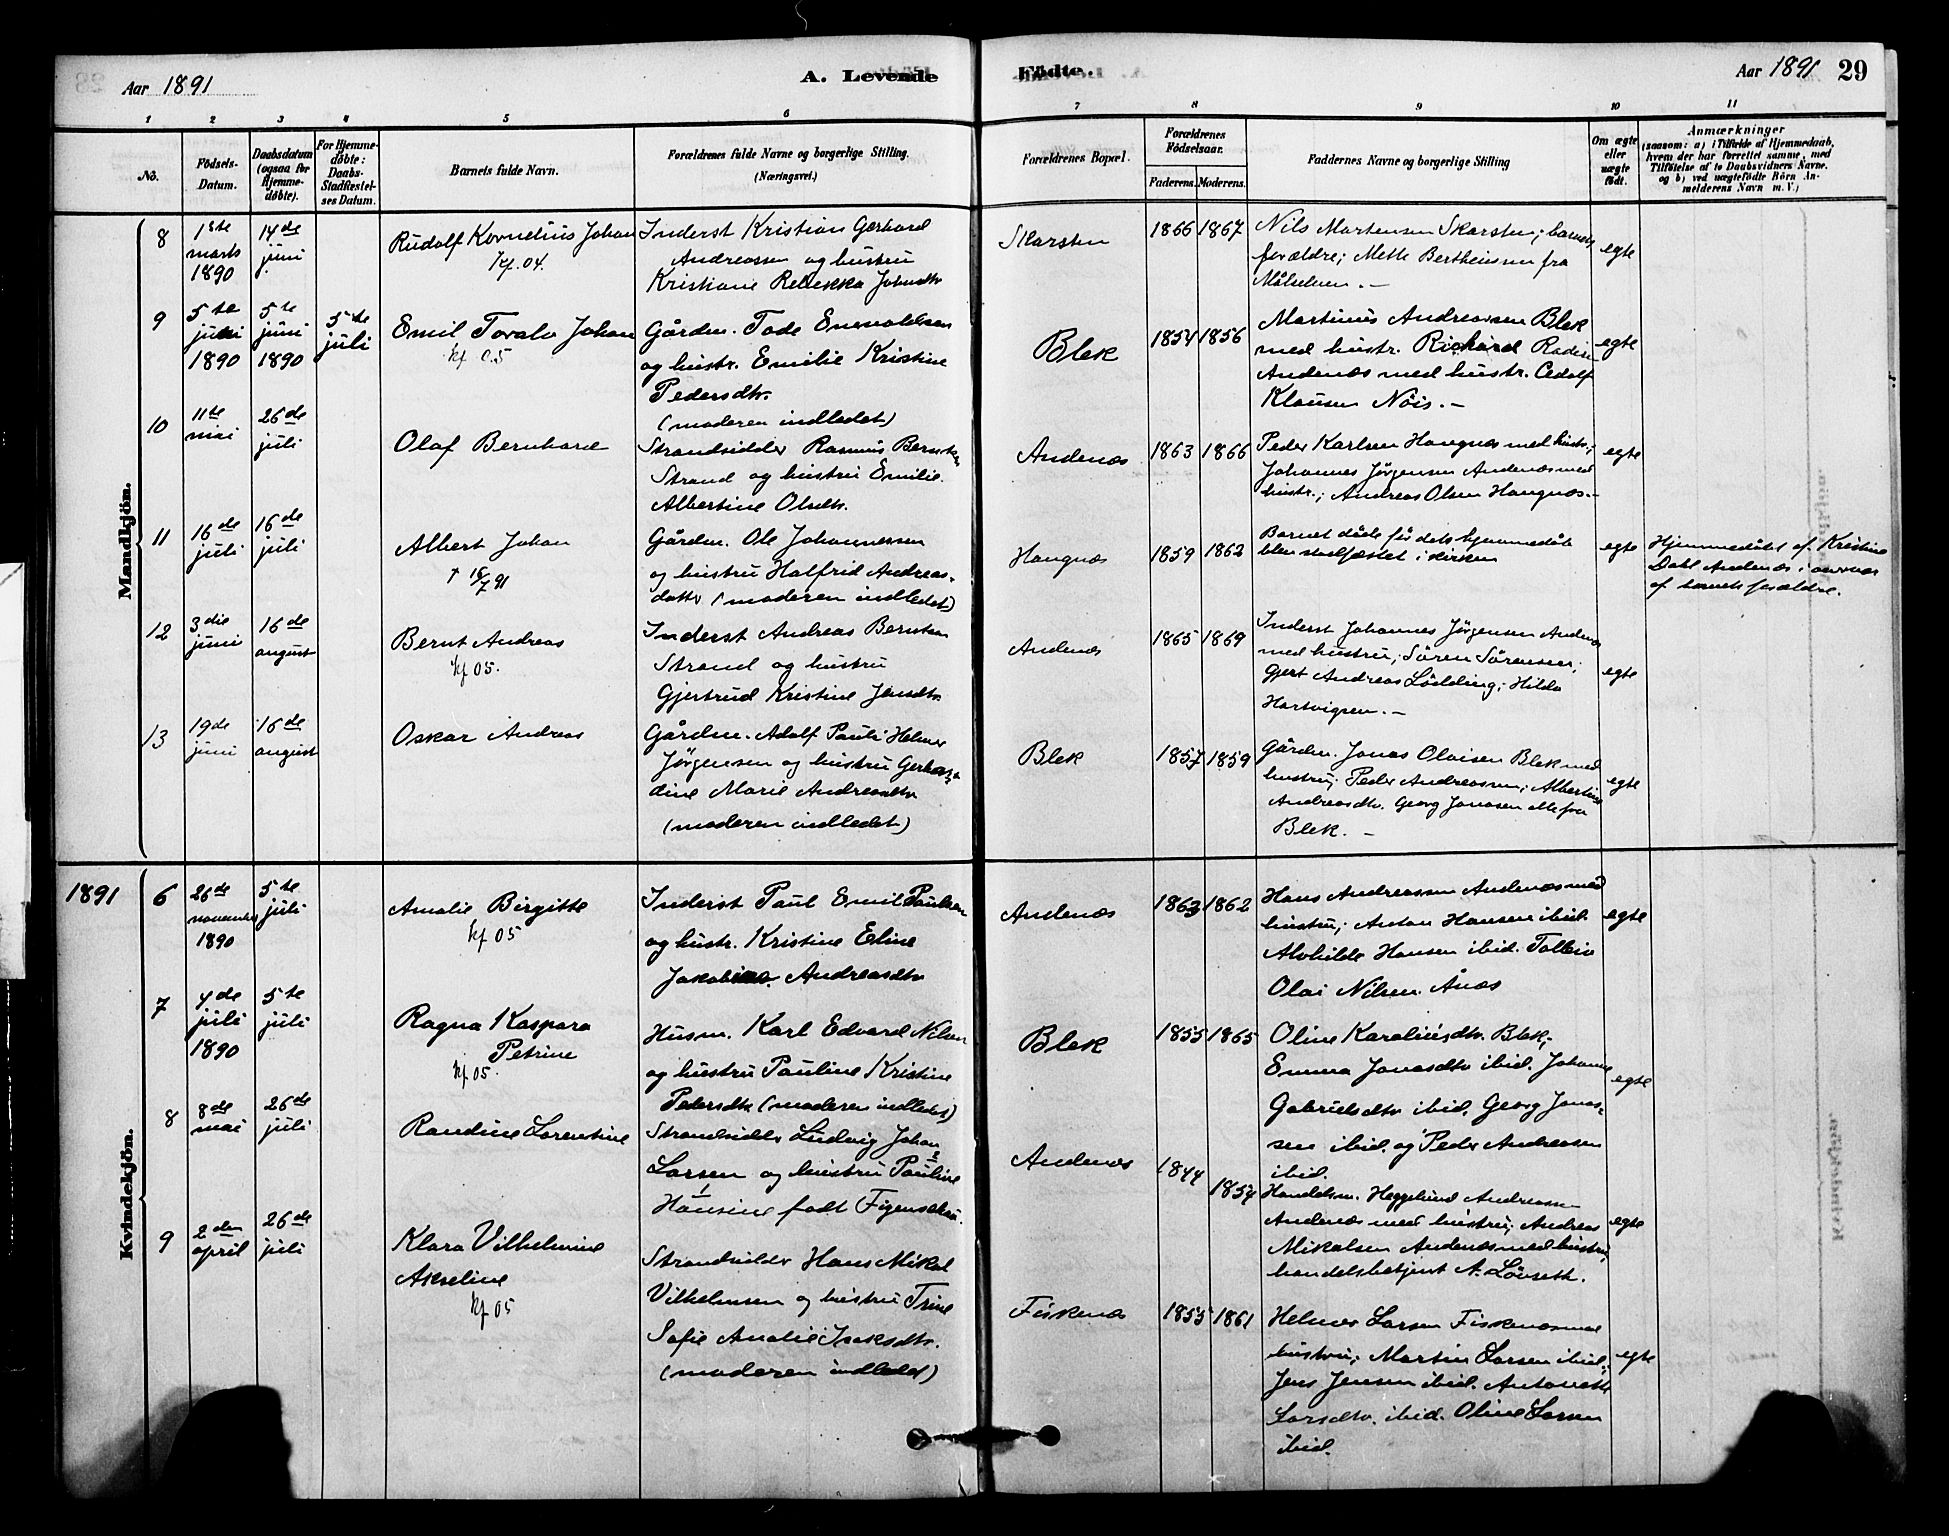 Aar 1891
A. Levende
Födte.
Aar 1891
29
1 2 3 4 5 6 7 8 9 10 11
No.
Födsels-
Datum.
Daabsdatum
(ogsaa for
Hjemme-
døbte).
For Hjemme-
døbte:
Daabs-
Stadfæstel-
ses Datum.
Barnets fulde Navn.
Forældrenes fulde Navne og borgerlige Stilling.
(Næringsvei.)
Forældrenes Bopæl.
Forældrenes
Fødselsaar.
Faderens. Moderens.
Faddernes Navne og borgerlige Stilling
Om ægte
eller
uægte
født.
Anmærkninger
(saasom: a) i Tilfælde af Hjemmedaab,
hvem der har forrettet samme, med
Tilføielse af to Daabsvidners Navne.
og b) ved uægtefødte Börn An-
melderens Navn m. V.)
Mandkjön.
8
1ste
marts
1890
14de
juni
Rudolf Kornelius Johan
kf. 04.
Inderst Kristian Gerhard
Andreassen og hustru
Kristiane Rebekka Johnsdtr
Skarsten
1866 1867
Nils Martensen Skarsten; barnets
forældre; Mette Bertheussen fra
Målselven. –
egte
9
5te
1890
5te
juni
1890
5te
juli
Emil Toralv Johan
kf 05
Gården. Tode Enevoldsen
og hustr. Emilie Kristine
Pedersdtr.
(moderen indledet)
Blek
1854 1856
Martinus Andreassen Blek
med hustr. Richard
Andenæs med hustr. Adolf
Klausen Nöis. –
egte
10
11te
mai
26de
juli
Olaf Bernhard
Strandsidder Rasmus Berntsen
Strand og hustru Emilie
Albertine Olsdtr.
Andenæs
1863 1866
Peder Karlsen Hangnæs med hustr.;
Johannes Jørgensen Andenæs med
hustr.; Andreas Olsen Hangnæs. –
egte
11
16de
juli
16de
juli
Albert Johan
† 16/7 91
Gården. Ole Johannessen
og hustru Halfrid Andreas-
datter (moderen indledet)
Hangnæs
1859 1862
Barnet døde før dets hjemmedåb
blev stadfæstet i kirken
egte
Hjemmedøbt af Kristine
Dahl Andenæs i nærvær
af barnets forældre.
12
3die
juni
16de
august
Bernt Andreas
kf 05.
Inderst Andreas Berntsen
Strand og hustru
Gjertrud Kristine Jensdtr
Andenæs
1865 1869
Inderst Johannes Jørgensen Andenæs
med hustru; Søren Sørensen;
Gjert Andreas Lödding; Hilda
Hartvigsen. –
egte
13
19de
juni
16de
august
Oskar Andreas
Gården. Adolf Pauli Helmer
Jørgensen og hustru Gerhar-
dine Marie Andreasdtr
(moderen indledet)
Blek
1857 1859
Gården. Jonas Olaisen Blek med
hustru; Peder Andreassen; Albertine
Andreasdtr. Georg Jonassen alle fra
Blek. –
egte
1891
Kvindekjön.
6
26de
november
1890
5te
juli
Amalie Birgitte
kf 05
Inderst Paul Emil Paulsen
og hustr. Kristine Eline
Andreasdtr
Andenæs
1863 1862
Hans Andreassen Andenæs med
hustru; Anton Hansen ibid.
Alvhilde Hansen ibid.
Olai Nilsen Ånes
egte
7
4de
juli
1890
5te
juli
Ragna Kaspara
Petrine
kf 05.
Husm. Karl Edvard Nilsen
og hustru Pauline Kristine
Pedersdtr (moderen indledet)
Blek
1855 1865
Oline Karoliusdtr. Blek;
Emma Jonasdtr ibid. Johanne
Gabrielsdtr ibid. Georg Jonas-
sen ibid. og Peder Andreassen
ibid.
egte
8
8de
mai
26de
juli
Randine Lorentine
Strandsidder Ludvig Johan
Larsen og hustru Pauline
Hansine født Figenschau.
Andenæs
1844
1854
Handelsm. Heggelund Andreassen
Andenæs med hustru; Andreas
Mikalsen Andenæs med hustru;
handelsbetjent A. Løvseth.
egte
9
2den
april
26de
juli
Klara Vilhelmine
Akseline
kf 05
Strandsidder Hans Mikal
Vilhelmsen og hustru Trine
Sofie Amalie Isaksdtr.
(moderen indledet)
Fiskenæs
1855 1861
Helmer Larsen Fiskenæs med
hustru; Martin Larsen ibid.;
Jens Jensen ibid. Antonette
Larsdtr. ibid. Oline Larsen
ibid.
egte